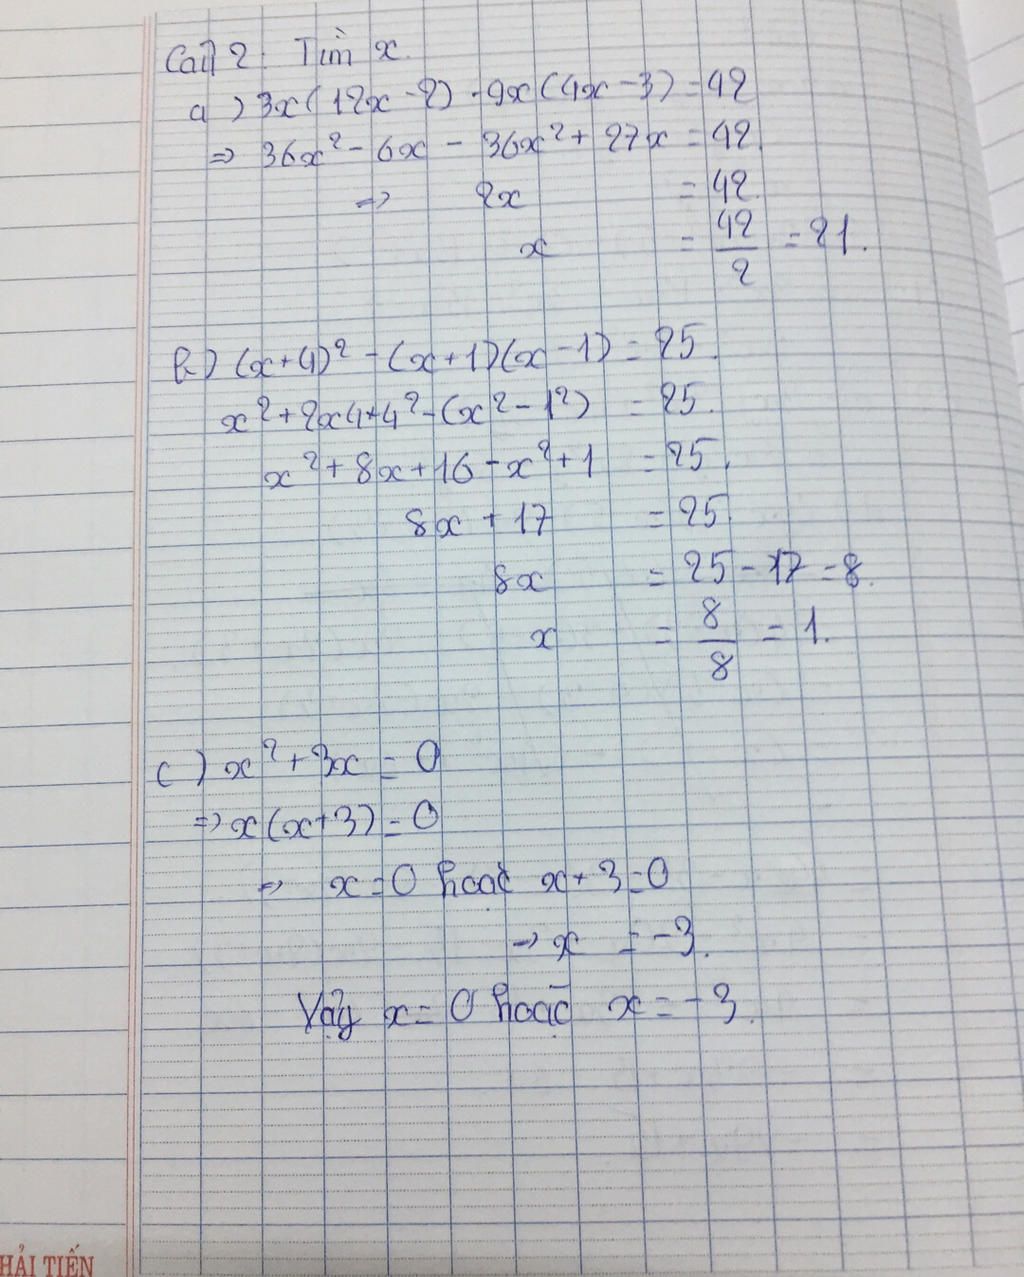 Câu 2: Tìm x.
a) 3x(12x - 2) - 9x(4x - 3) = 42
=> 36x² - 6x - 36x² + 27x = 42.
=> 2x = 42.
x = 42/2 = 21.
b) (x+4)² - (x+1)(x-1) = 25.
x² + 2x4 + 4² - (x² - 1²) = 25.
x² + 8x + 16 - x² + 1 = 25.
8x + 17 = 25.
8x = 25 - 17 = 8.
x = 8/8 = 1.
c) x² + 3x = 0
=> x(x+3) = 0
=> x = 0 hoặc x + 3 = 0
=> x = -3.
Vậy x = 0 hoặc x = -3.
HẢI TIẾN